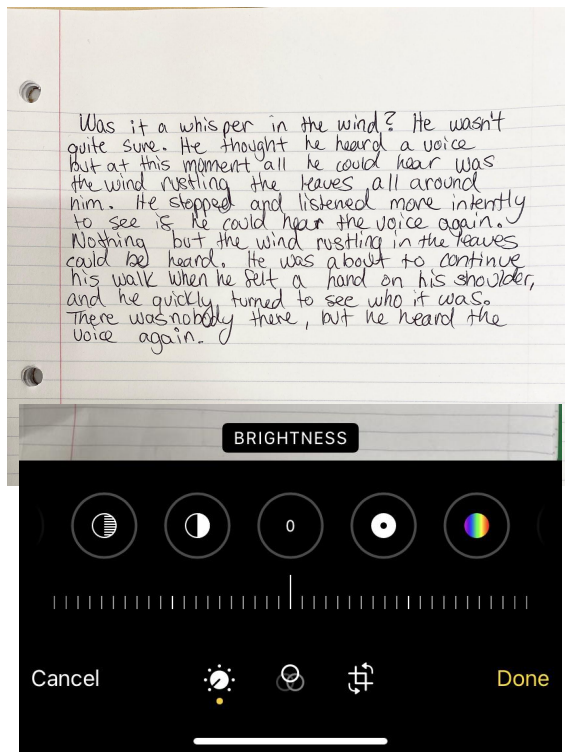 Was it a whisper in the wind? He wasn't
quite sure. He thought he heard a voice
but at this moment all he could hear was
the wind rustling the leaves all around
him. He stopped and listened more intently
to see if he could hear the voice again.
Nothing but the wind rustling in the leaves
could be heard. He was about to continue
his walk when he felt a hand on his shoulder,
and he quickly turned to see who it was.
There was nobody there, but he heard the
voice again.
BRIGHTNESS
0
Cancel
Done